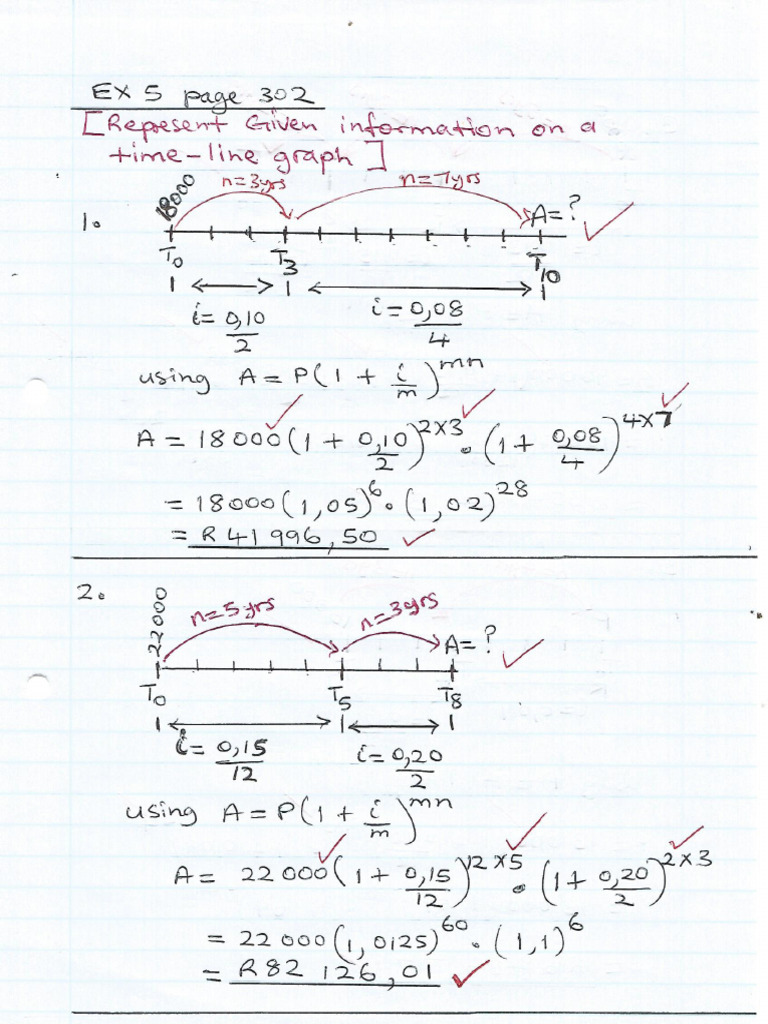 EX 5 page 302
[Represent Given information on a
time-line graph]
1.
18000 n=3yrs n=7yrs A=? ✓
T0 T3 T10
i= 0,10/2 i= 0,08/4
using A = P(1 + i/m)^mn
A = 18000(1 + 0,10/2)^2×3 · (1 + 0,08/4)^4×7
= 18000(1,05)^6 · (1,02)^28
= R 41 996,50 ✓
2.
22000 n=5yrs n=3yrs A=? ✓
T0 T5 T8
i= 0,15/12 i= 0,20/2
using A = P(1 + i/m)^mn
A = 22 000(1 + 0,15/12)^12×5 · (1 + 0,20/2)^2×3
= 22 000(1,0125)^60 · (1,1)^6
= R82 126,01 ✓